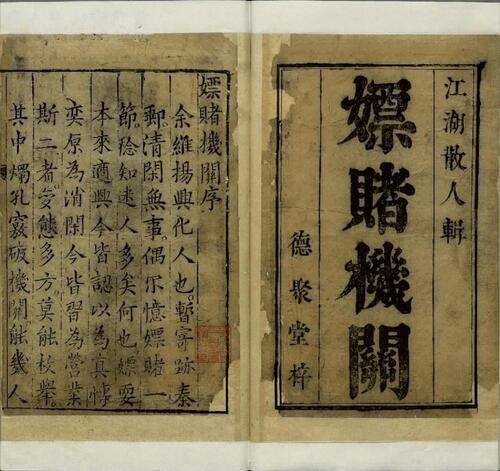 江湖散人輯
嫖賭機關
德聚堂梓
嫖賭機關序
余維揚興化人也。暫寄跡秦
郵。清閑無事。偶尔憶嫖賭一
節。稔知迷人多矣何也嫖耍
本來適興今皆認以為真悖
奕原為消閑今皆習為營業
斯二者。変態多方。莫能枚舉。
其中燭孔竅破機關能幾人